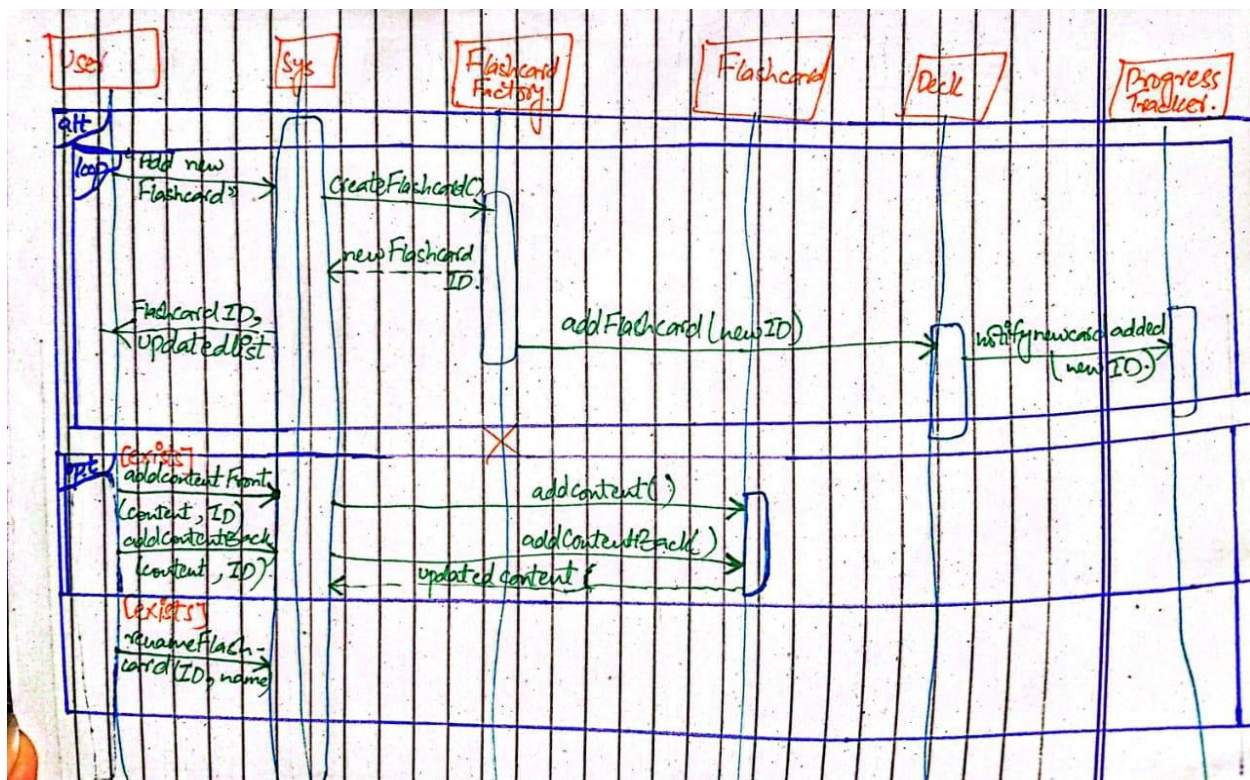 User
Sys
Flashcard
Factory
Flashcard
Deck
Progress
Tracker.
alt
loop
"Add new
Flashcard"
createFlashcard()
newFlashcard
ID.
Flashcard ID,
updatedlist
addFlashcard (newID)
notifynewcard added
(new ID.)
opt
[exists]
addcontentFront
(content, ID)
addcontent()
addcontentBack
(content, ID)
addContentBack()
updated content
[exists]
renameFlash-
card(ID, name)